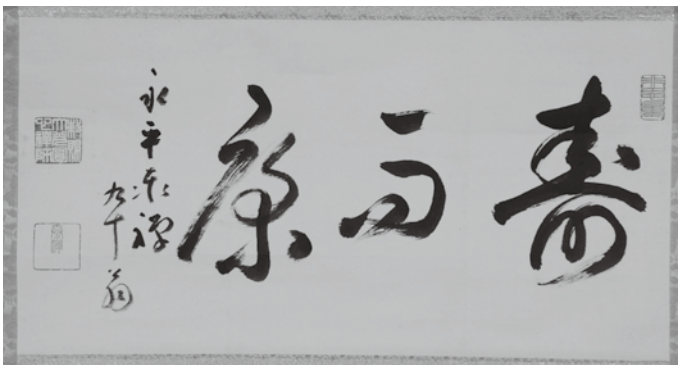 寿而康
永平泰禅
九十翁